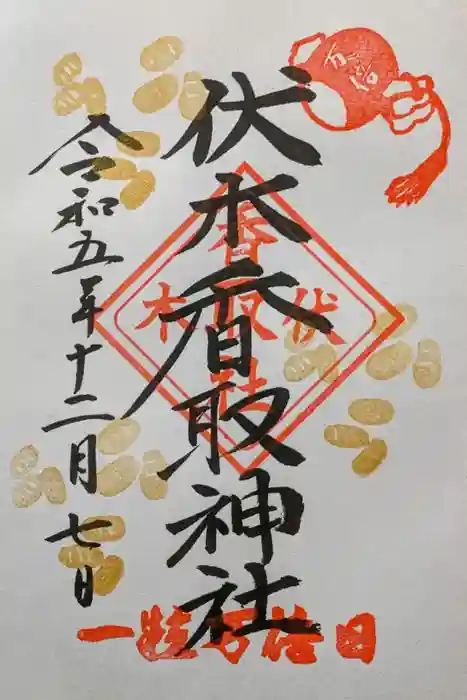 伏木香取神社
令和五年十二月七日
伏木
香取
一粒万倍日